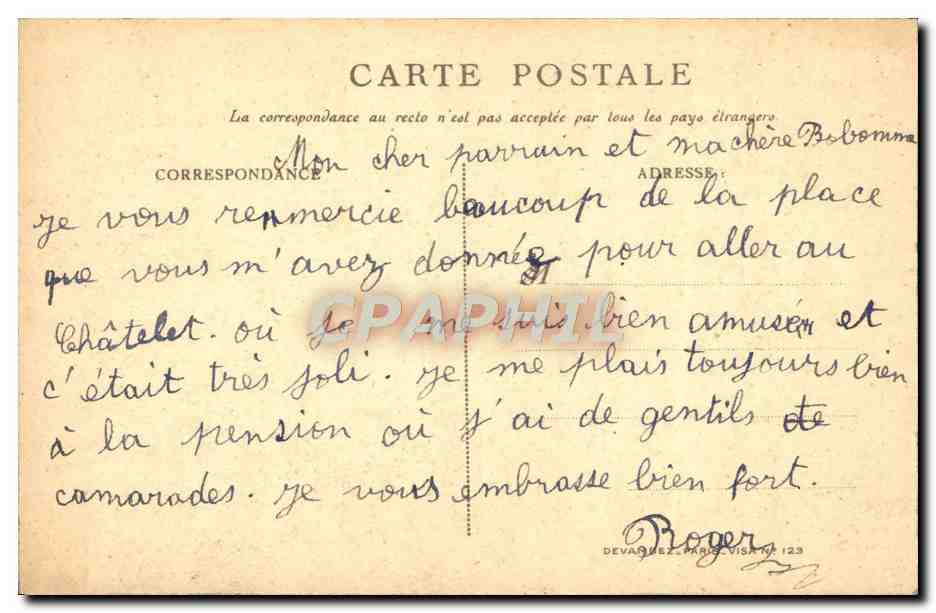 CARTE POSTALE
La correspondance au recto n'est pas acceptée par tous les pays étrangers.
Mon cher parrain et ma chère Bobomma
CORRESPONDANCE ADRESSE:
je vous remmercie beaucoup de la place
que vous m'avez donnée pour aller au
Châtelet. où je me suis bien amuser et
c'était très joli. je me plais toujours bien
à la pension où j'ai de gentils de
camarades. je vous embrasse bien fort.
Roger
DEVAMBEZ_PARIS_VISA No 123
CPAPHIL